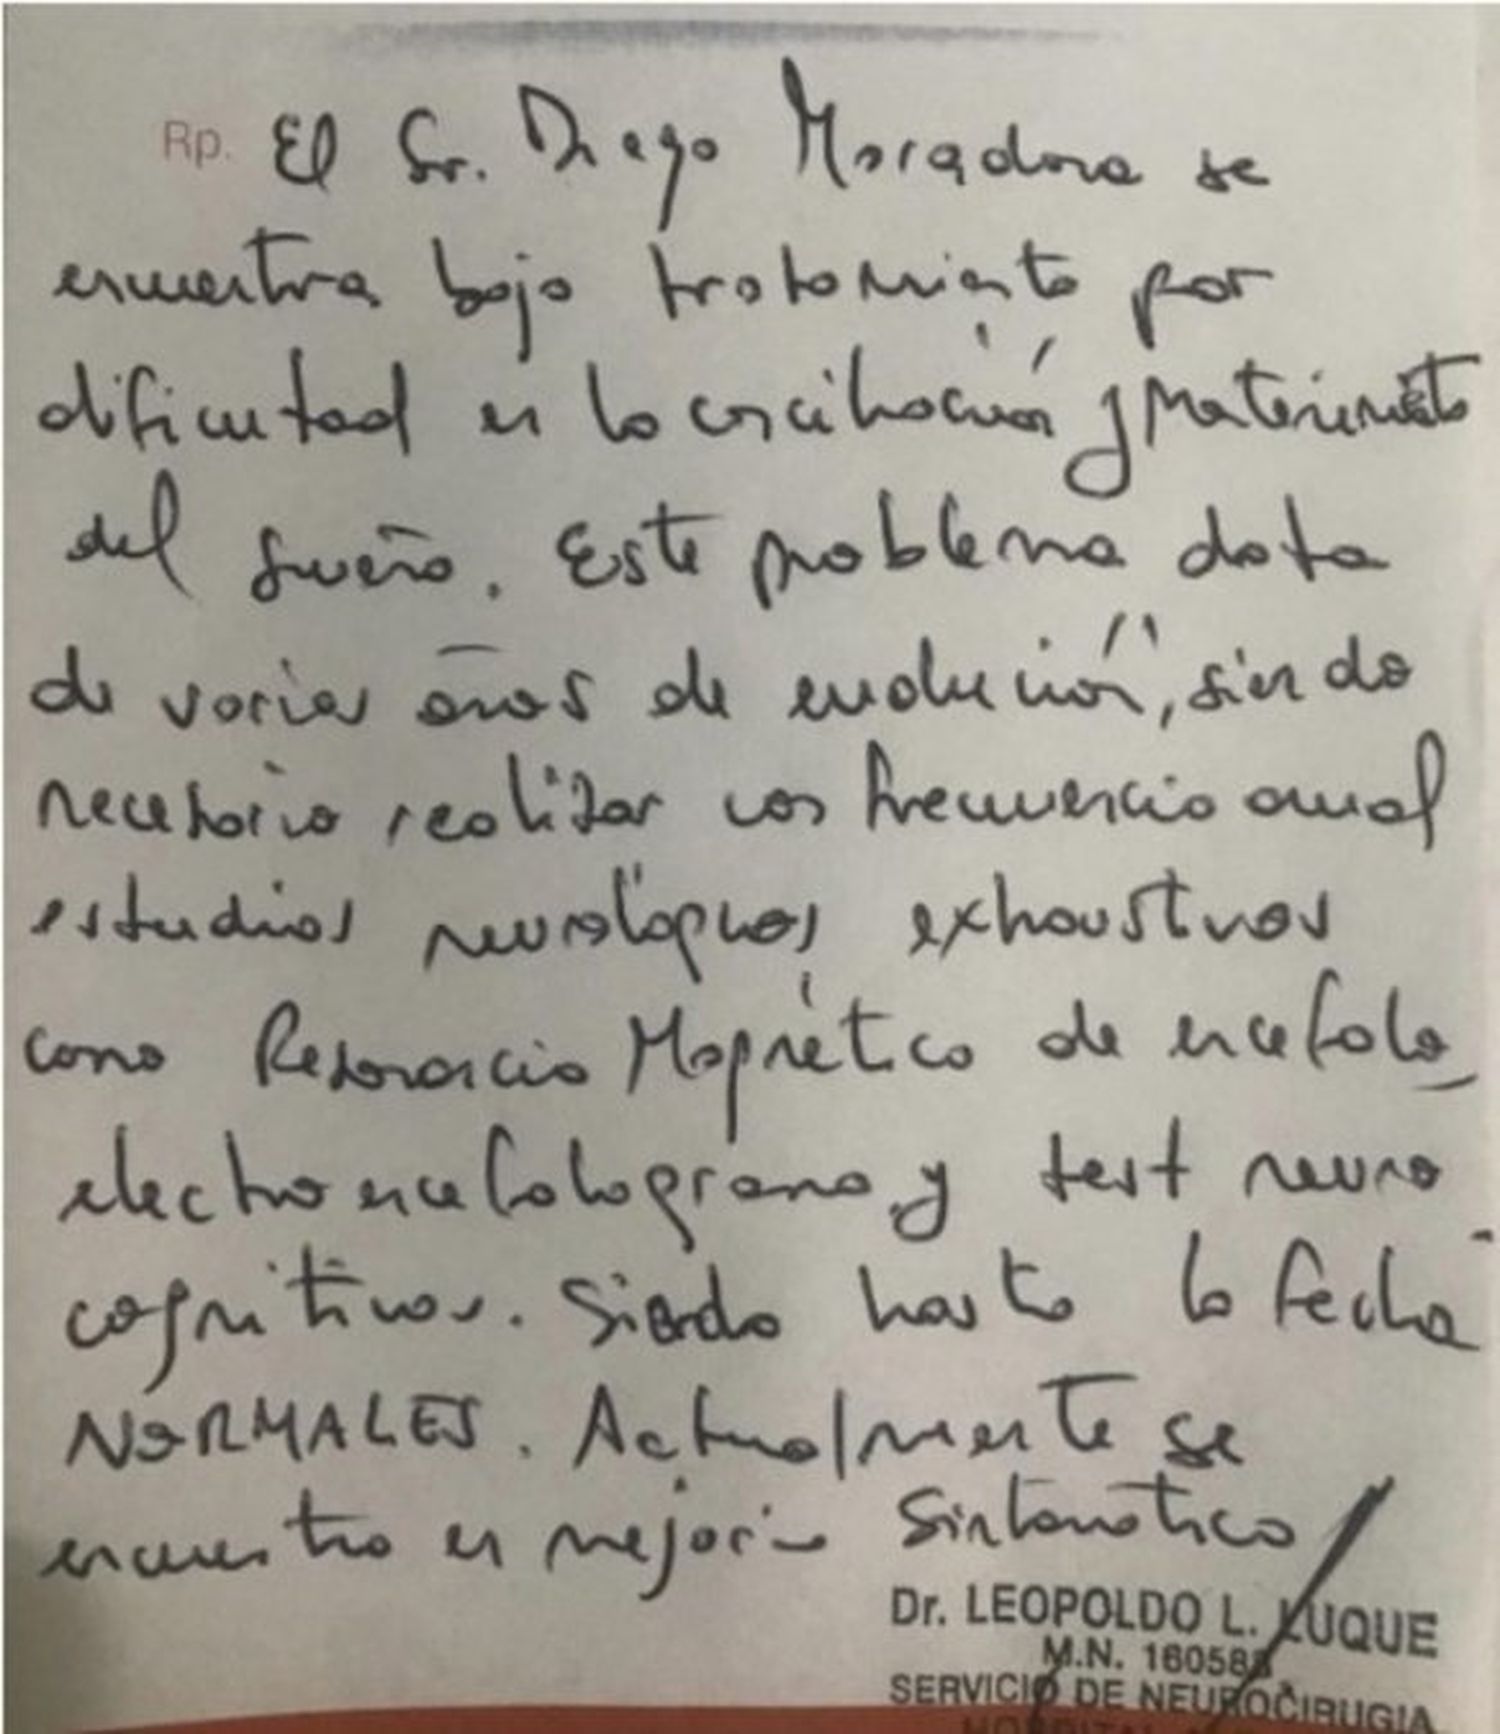 Rp. El Sr. Diego Maradona se
encuentra bajo tratamiento por
dificultad en la conciliación y mantenimiento
del sueño. Este problema data
de varios años de evolución, siendo
necesario realizar con frecuencia anual
estudios neurológicos exhaustivos
como Resonancia Magnética de encefalo,
electroencefalograma y test neuro
cognitivos. Siendo hasta la fecha
NORMALES. Actualmente se
encuentra en mejoría sintomática
Dr. LEOPOLDO L. LUQUE
M.N. 160588
SERVICIO DE NEUROCIRUGIA
HOSPITAL